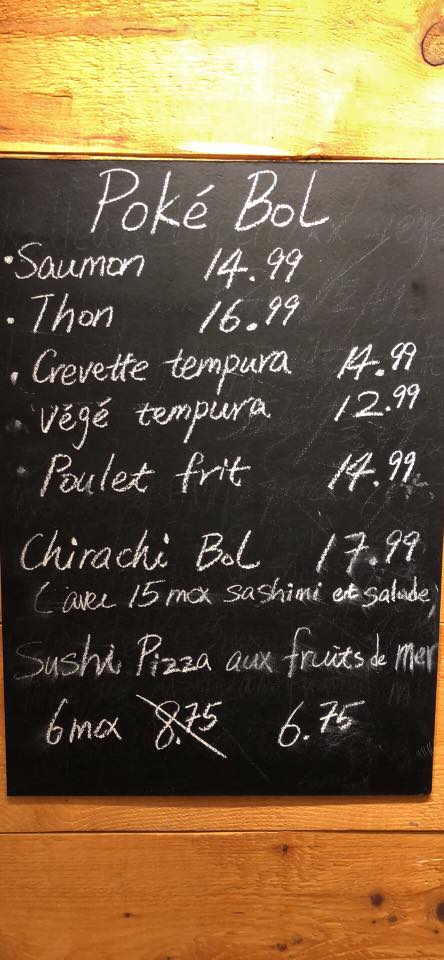 Poké Bol
• Saumon 14.99
• Thon 16.99
• Crevette tempura 14.99
végé tempura 12.99
• Poulet frit 14.99
Chirachi Bol 17.99
(avec 15 mcx sashimi et salade)
Sushi Pizza aux fruits de mer
6 mcx 8.75 6.75